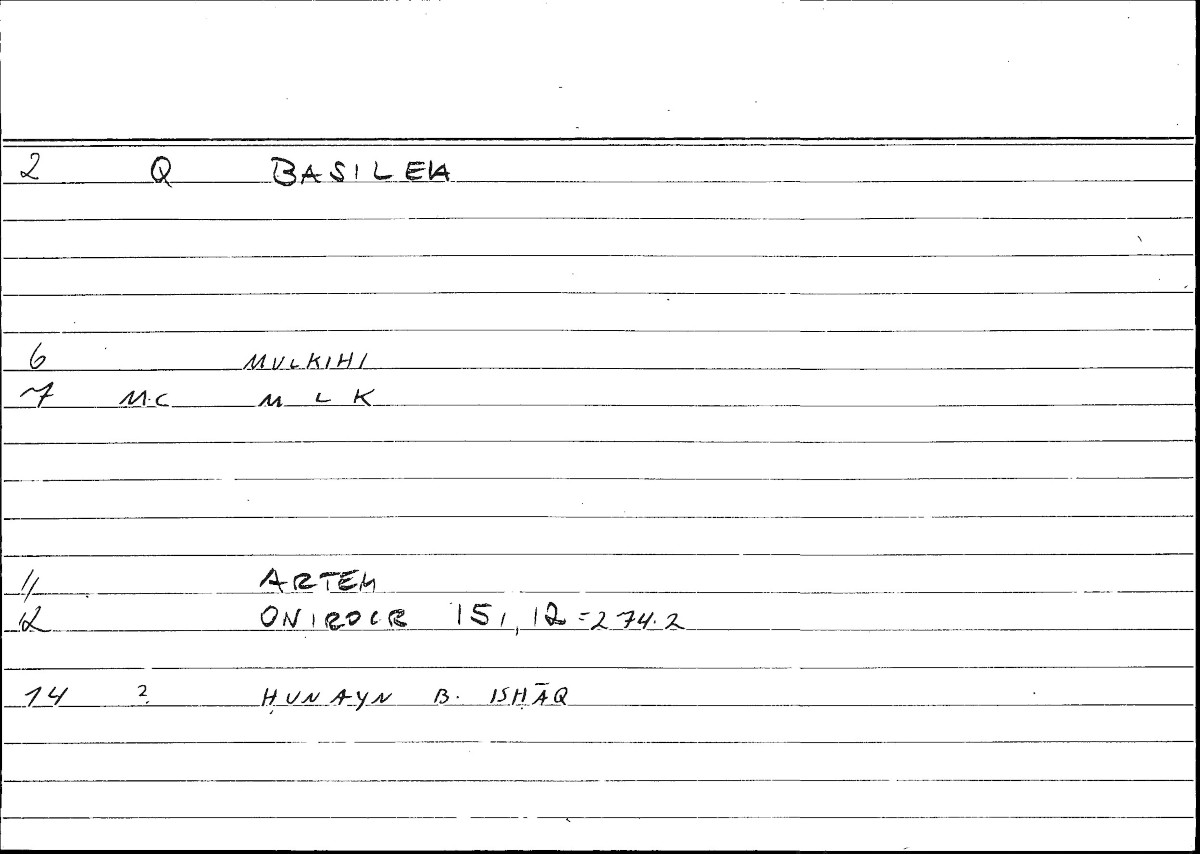 2 Q BASILEIA
6 MULKIHI
7 M.C M L K
11 ARTEM
12 ONIROCR 151,12=274.2
14 ? ḤUNAYN B. ISḤĀQ